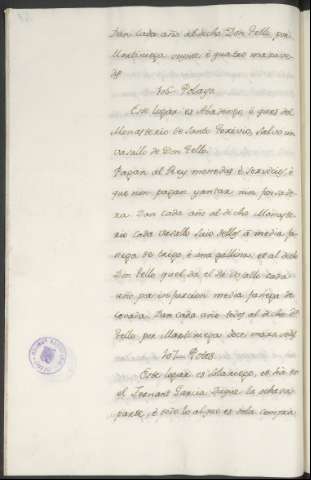 Dan cada año al dicho Don Tello por
Martiniega veynte é quatro maravedis
Polayo
Este lugar es Abadengo, é que es del
Monasterio de Santo Toribio, salvo un
vasallo de Don Tello.
Pagan al Rey monedas é servicios, é
que non pagan yantar nin fonsade-
ra. Dan cada año al dicho Moneste-
rio cada vasallo suio dellos á media fa-
nega de trigo, é una gallina, et al dicho
Don Tello quel da el de vasallo cada
año por infurcion media fanega de
cevada. Dan cada año todos al dicho Dⁿ
Tello por Martiniega doce maravedis
Este lugar es solariego, et es de
Ferrant Garcia Duque la ochava
parte, é todo lo al que es dela compra